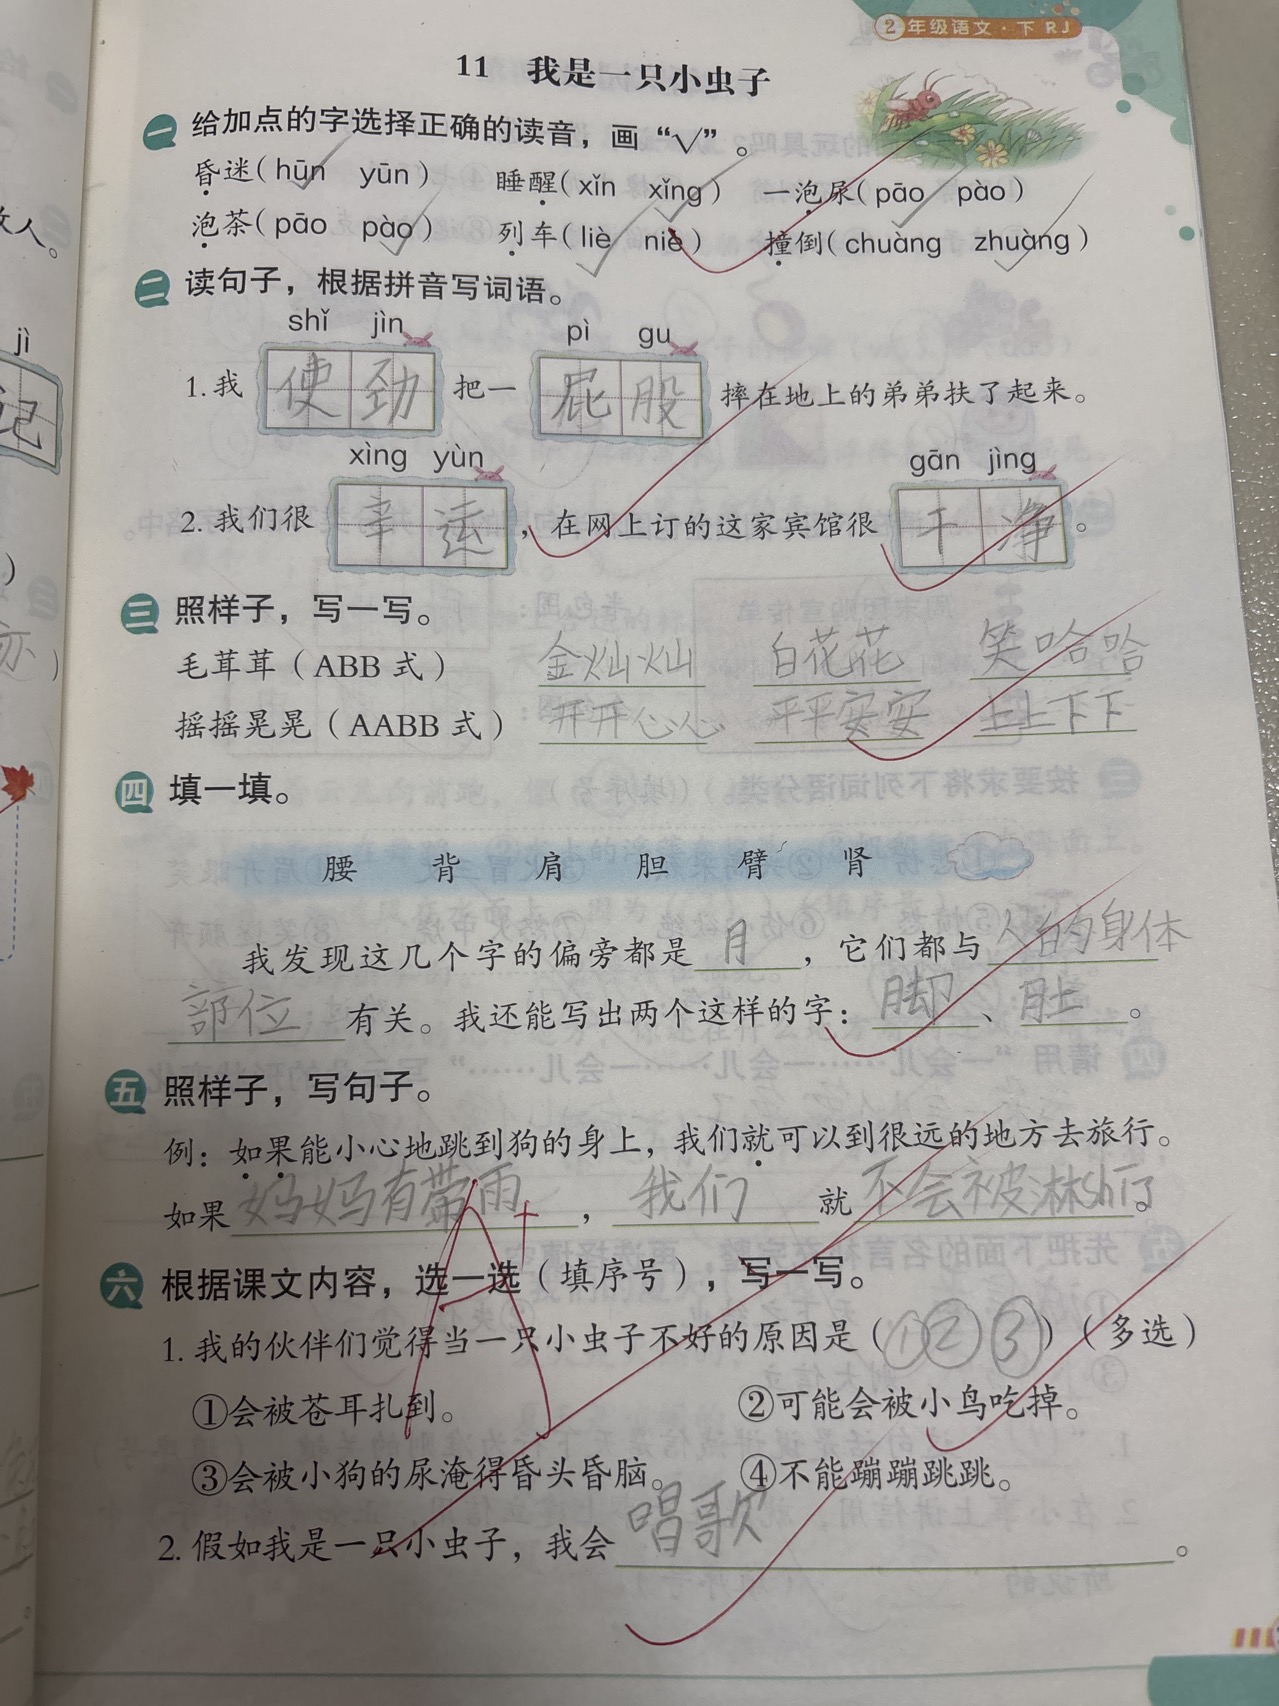 2年级语文·下 RJ
11 我是一只小虫子
一 给加点的字选择正确的读音，画“√”。
昏迷(hūn yūn) 睡醒(xǐn xǐng) 一泡尿(pāo pào)
泡茶(pāo pào) 列车(liè niè) 撞倒(chuàng zhuàng)
二 读句子，根据拼音写词语。
shǐ jìn pì gu
1.我 使劲 把一 屁股 摔在地上的弟弟扶了起来。
xìng yùn gān jìng
2.我们很 幸运 ，在网上订的这家宾馆很 干净 。
三 照样子，写一写。
毛茸茸（ABB式） 金灿灿 白花花 笑哈哈
摇摇晃晃（AABB式） 开开心心 平平安安 上上下下
四 填一填。
腰 背 肩 胆 臂 肾
我发现这几个字的偏旁都是 月 ，它们都与 人的身体
部位 有关。我还能写出两个这样的字： 脚 、 肚 。
五 照样子，写句子。
例：如果能小心地跳到狗的身上，我们就可以到很远的地方去旅行。
如果 妈妈有带雨 ， 我们 就 不会被淋shī了 。
A+
六 根据课文内容，选一选（填序号），写一写。
1.我的伙伴们觉得当一只小虫子不好的原因是（①②③）（多选）
①会被苍耳扎到。 ②可能会被小鸟吃掉。
③会被小狗的尿淹得昏头昏脑。 ④不能蹦蹦跳跳。
2.假如我是一只小虫子，我会 唱歌 。
敌人。
jì
记